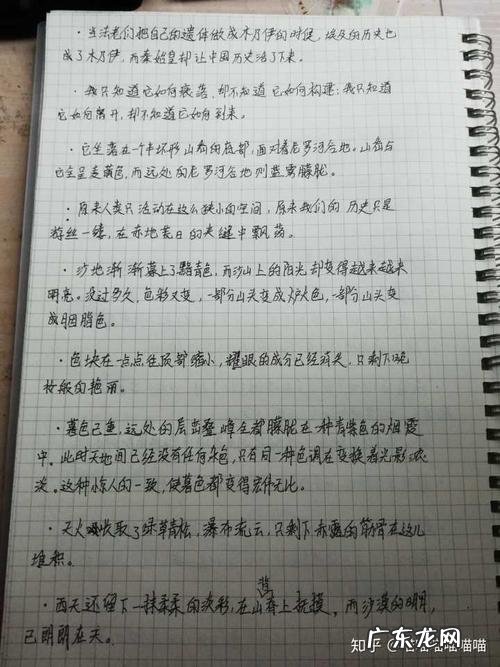 ·当法老们把自己的遗体做成木乃伊的时候，埃及的历史也
成了木乃伊，而秦始皇却让中国历史活了下来。
·我只知道它如何衰落，却不知道它如何构建；我只知道
它如何离开，却不知道它如何到来。
·它坐落在一个半环形山岙的底部，面对着尼罗河谷地。山岙与
它全呈麦黄色，而远处的尼罗河谷地则蓝雾朦胧。
·原来人类只活动在这么狭小的空间，原来我们的历史只是
游丝一缕，在赤地荒日的夹缝中飘荡。
·沙地渐渐蒙上了黯青色，而沙山上的阳光却变得越来越
明亮。没过多久，色彩又变，一部分山头变成炉火色，一部分山头变
成胭脂色。
·色块在一点点往顶部缩小，耀眼的成分已经消失，只剩下晚
妆般的艳丽。
·暮色已重，远处的层峦叠峰全都朦胧在一种青紫色的烟霞
中。此时天地间已经没有任何杂色，只有同一种色调在变换着光影浓
淡。这种惊人的一致，使暮色都变得宏伟无比。
·天火收取了绿草青松，瀑布流云，只剩下赤露的筋骨在这儿
堆积。
·西天还留下一抹柔柔的淡彩，在山脊上抚摸，而沙漠的明月，
已朗朗在天。
知乎
广东龙网